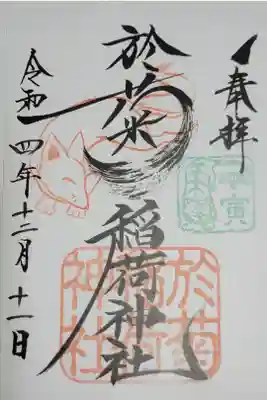 奉拝
壬寅
於菊
稲荷神社
於菊稲荷神社
令和四年十二月十一日